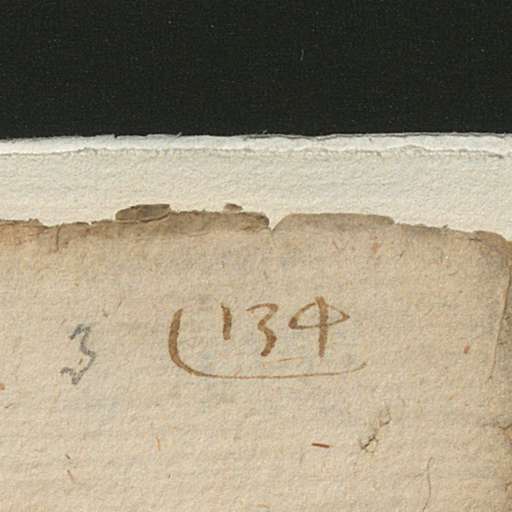 3 134